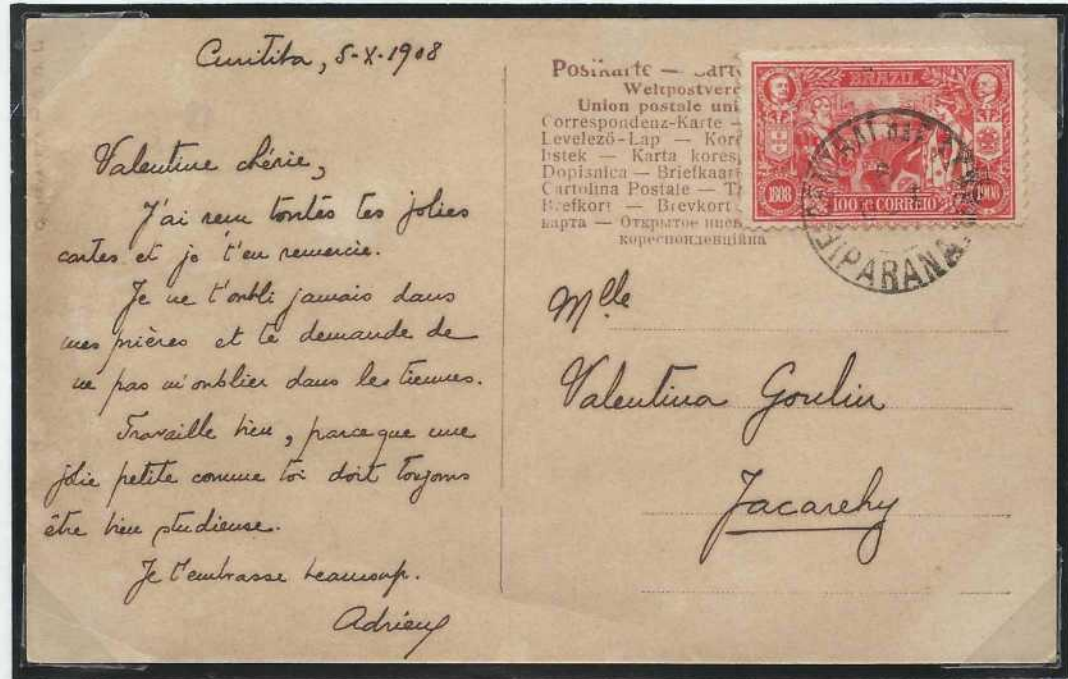 Curitiba, 5-X-1908
Valentine chérie,
J'ai reçu toutes tes jolies
cartes et je t'en remercie.
Je ne t'oubli jamais dans
mes prières et te demande de
ne pas m'oublier dans les tiennes.
Travaille bien, parce que une
jolie petite comme toi doit toujours
être bien studieuse.
Je t'embrasse beaucoup.
Adrien
Postkarte — Carte
Weltpostvere
Union postale uni
Correspondenz-Karte —
Levelező-Lap — Kore
listek — Karta kores
Dopisnica — Briefkaart
Cartolina Postale — T
Brefkort — Brevkort
карта — Открытое
кореспонденційна
BRAZIL
1808 100 Rs CORREIO 1908
PARANA
Mlle
Valentina Goulin
Jacarehy